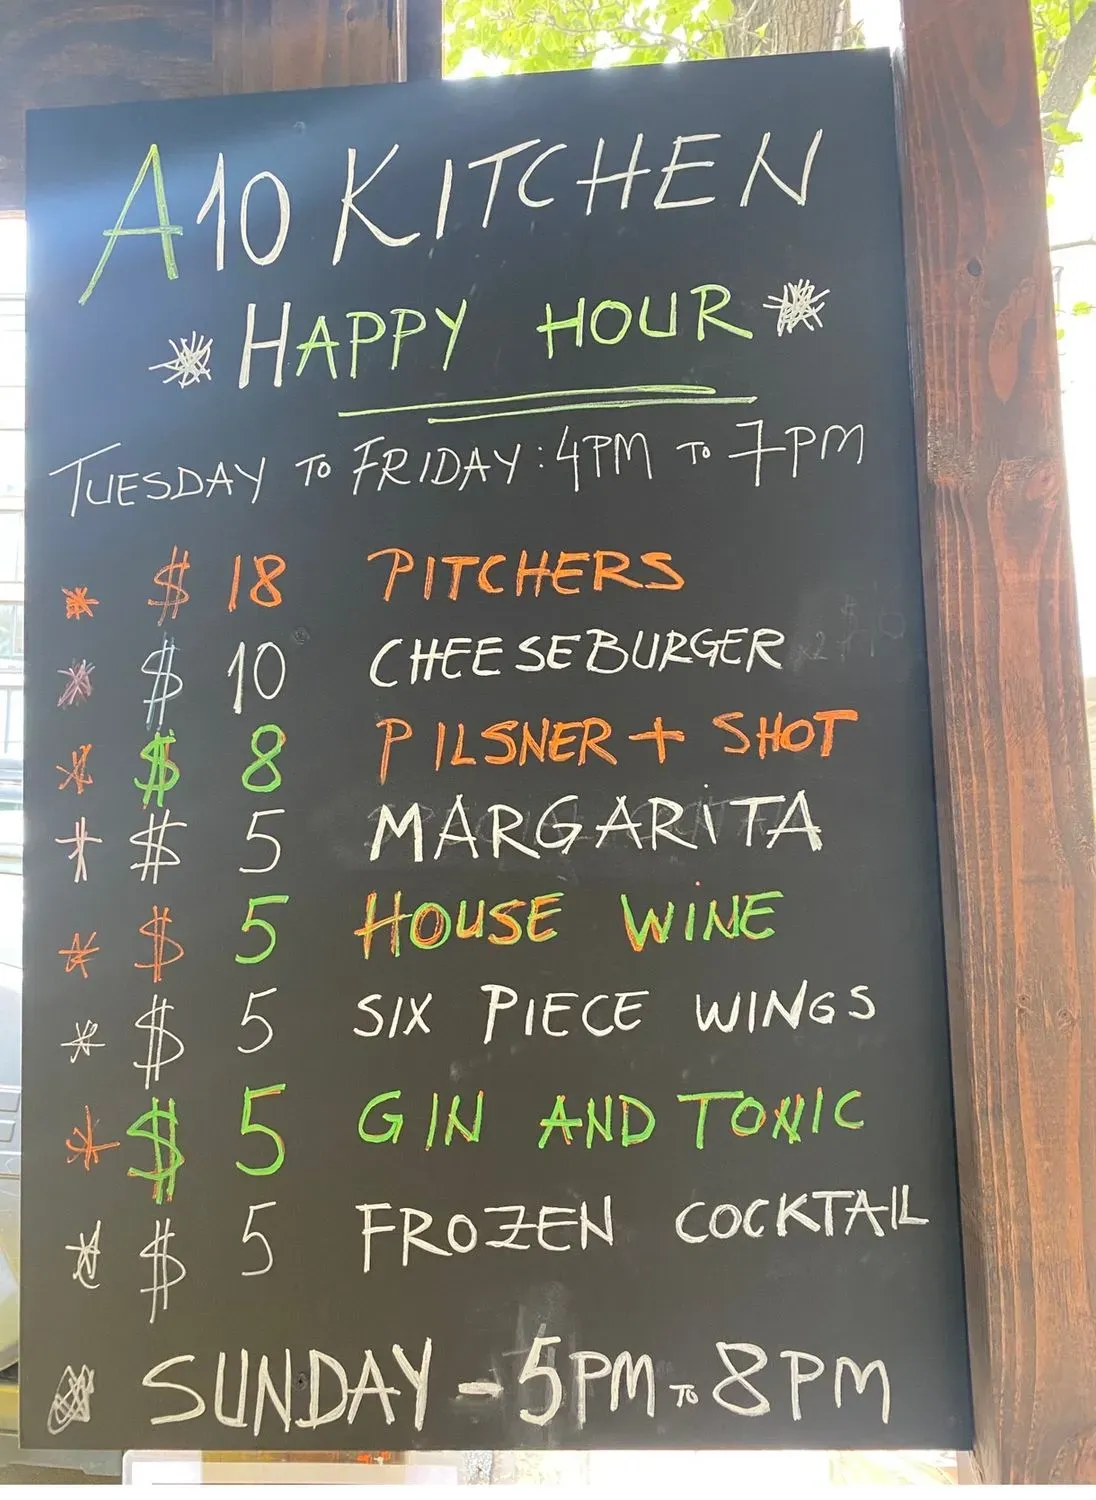 A10 KITCHEN
HAPPY HOUR
TUESDAY TO FRIDAY: 4PM TO 7PM
$ 18 PITCHERS
$ 10 CHEESEBURGER
$ 8 PILSNER + SHOT
$ 5 MARGARiTA
$ 5 HOUSE WiNE
$ 5 SIX PIECE WINGS
$ 5 GIN AND TONIC
$ 5 FROZEN COCKTAIL
SUNDAY - 5PM TO 8PM